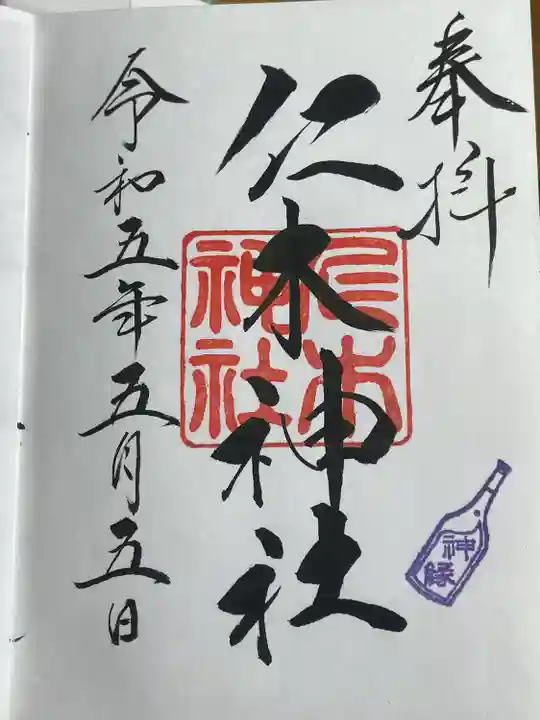 奉拝
仁木神社
仁木
神社
神縁
令和五年五月五日